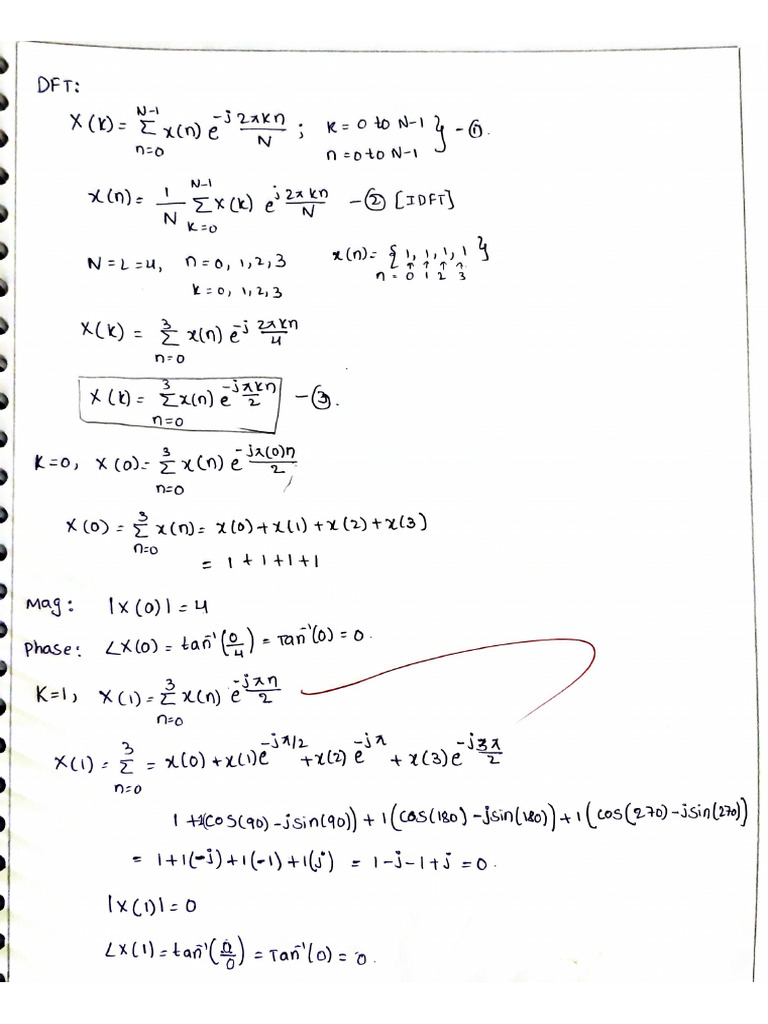 DFT:
X(k) = Σ_{n=0}^{N-1} x(n) e^{-j 2πkn/N} ; k = 0 to N-1 } - ①.
n = 0 to N-1
x(n) = 1/N Σ_{k=0}^{N-1} X(k) e^{j 2πkn/N} - ② [IDFT]
N = L = 4, n = 0, 1, 2, 3 x(n) = { 1, 1, 1, 1 }
↑ ↑ ↑ ↑
k = 0, 1, 2, 3 n = 0 1 2 3
X(k) = Σ_{n=0}^{3} x(n) e^{-j 2πkn/4}
X(k) = Σ_{n=0}^{3} x(n) e^{-jπkn/2} - ③.
K=0, X(0) = Σ_{n=0}^{3} x(n) e^{-jπ(0)n/2}
X(0) = Σ_{n=0}^{3} x(n) = x(0) + x(1) + x(2) + x(3)
= 1 + 1 + 1 + 1
Mag: |X(0)| = 4
Phase: ∠X(0) = tan⁻¹(0/4) = Tan⁻¹(0) = 0.
K=1, X(1) = Σ_{n=0}^{3} x(n) e^{-jπn/2}
X(1) = Σ_{n=0}^{3} = x(0) + x(1)e^{-jπ/2} + x(2)e^{-jπ} + x(3)e^{-j3π/2}
1 + 1(cos(90) - jsin(90)) + 1(cos(180) - jsin(180)) + 1(cos(270) - jsin(270))
= 1 + 1(-j) + 1(-1) + 1(j) = 1 - j - 1 + j = 0.
|X(1)| = 0
∠X(1) = tan⁻¹(0/0) = Tan⁻¹(0) = 0.